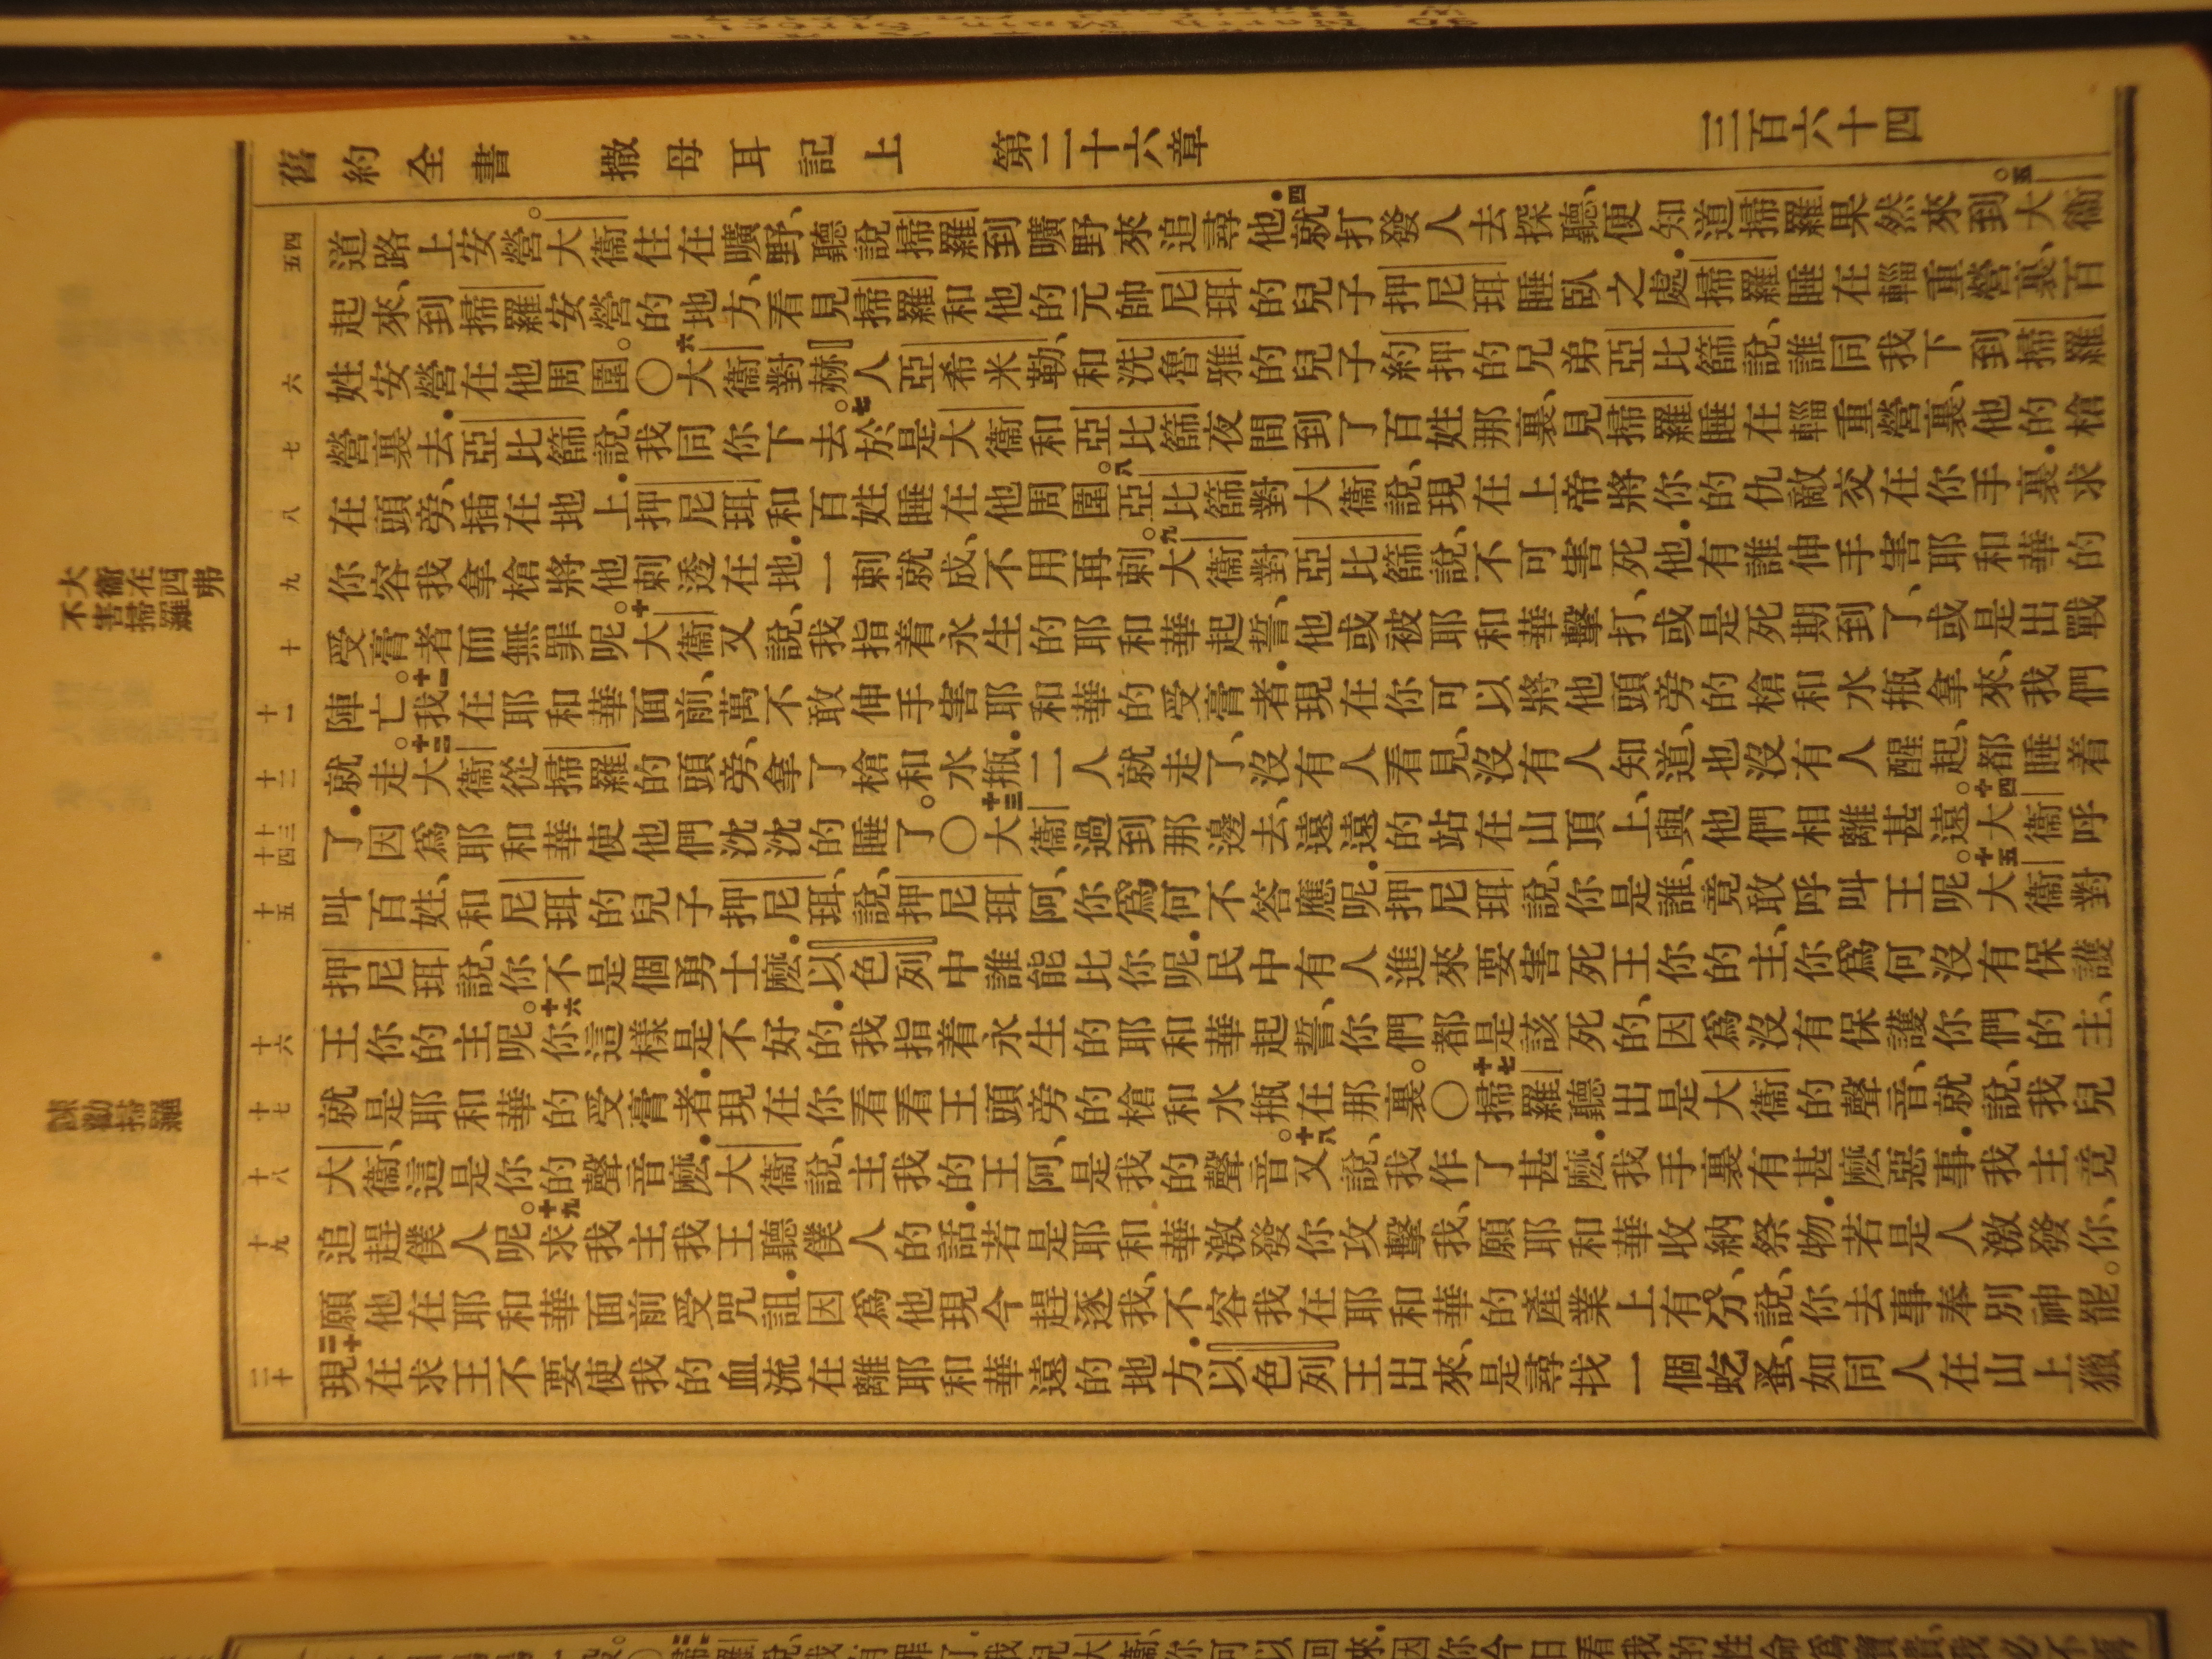 舊約全書 撒母耳記上 第二十六章 三百六十四
四五
道路上安營。大衞住在曠野、聽說掃羅到曠野來追尋他．四就打發人去探聽、便知道掃羅果然來到。五大衞
起來、到掃羅安營的地方、看見掃羅和他的元帥尼珥的兒子押尼珥睡臥之處．掃羅睡在輜重營裏、百
六
姓安營在他周圍。〇六大衞對赫人亞希米勒、和洗魯雅的兒子約押的兄弟亞比篩說、誰同我下到掃羅
七
營裏去．亞比篩說、我同你下去。七於是大衞和亞比篩夜間到了百姓那裏、見掃羅睡在輜重營裏、他的槍
八
在頭旁、插在地上．押尼珥和百姓睡在他周圍。八亞比篩對大衞說、現在上帝將你的仇敵交在你手裏．求
九
你容我拿槍將他刺透在地．一刺就成、不用再刺。九大衞對亞比篩說、不可害死他．有誰伸手害耶和華的
大衞在西弗
不害掃羅
十
受膏者而無罪呢。十大衞又說、我指着永生的耶和華起誓、他或被耶和華擊打、或是死期到了、或是出戰
十一
陣亡。十一我在耶和華面前、萬不敢伸手害耶和華的受膏者．現在你可以將他頭旁的槍和水瓶拿來、我們
十二
就走。十二大衞從掃羅的頭旁、拿了槍和水瓶．二人就走了、沒有人看見、沒有人知道、也沒有人醒起、都睡着
十三十四
了．因爲耶和華使他們沈沈的睡了。〇十三大衞過到那邊去、遠遠的站在山頂上、與他們相離甚遠。十四大衞呼
十五
叫百姓、和尼珥的兒子押尼珥、說、押尼珥阿、你爲何不答應呢．押尼珥說、你是誰、竟敢呼叫王呢。十五大衞對
押尼珥說、你不是個勇士麽．以色列中誰能比你呢．民中有人進來要害死王你的主、你爲何沒有保護
十六
王你的主呢。十六你這樣是不好的．我指着永生的耶和華起誓、你們都是該死的、因爲沒有保護你們的主、
十七
就是耶和華的受膏者．現在你看看王頭旁的槍和水瓶在那裏。〇十七掃羅聽出是大衞的聲音、就說、我兒
諫勸掃羅
十八
大衞、這是你的聲音麽．大衞說、主我的王阿、是我的聲音。十八又說、我作了甚麽．我手裏有甚麽惡事．我主竟
十九
追趕僕人呢。十九求我主我王聽僕人的話．若是耶和華激發你攻擊我、願耶和華收納祭物．若是人激發你、
願他在耶和華面前受咒詛．因爲他現今趕逐我、不容我在耶和華的產業上有分、說、你去事奉別神罷。
二十
二十現在求王不要使我的血流在離耶和華遠的地方．以色列王出來、是尋找一個虼蚤、如同人在山上獵
掃羅說、我有罪了．我兒大衞、你可以回來．因你今日看我的性命爲寶貴、我必不再